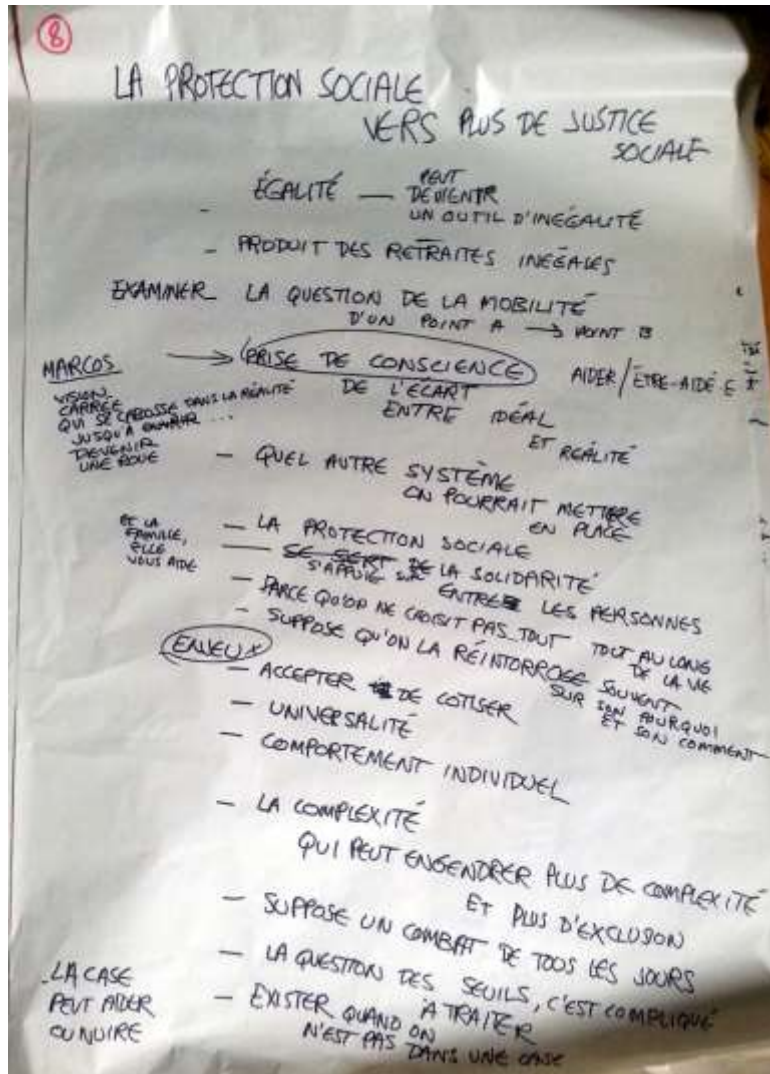 8
LA PROTECTION SOCIALE
VERS PLUS DE JUSTICE
SOCIALE
- ÉGALITÉ — PEUT
DEVENIR
UN OUTIL D'INÉGALITÉ
- PRODUIT DES RETRAITES INÉGALES
EXAMINER LA QUESTION DE LA MOBILITÉ
D'UN POINT A → POINT B
MARCOS → PRISE DE CONSCIENCE AIDER/ÊTRE-AIDÉ·E
DE L'ÉCART
ENTRE IDÉAL
ET RÉALITÉ
VISION
CARRÉE
QUI SE CABOSSE DANS LA RÉALITÉ
JUSQU'À ...
DEVENIR
UNE ROUE
- QUEL AUTRE SYSTÈME
ON POURRAIT METTRE
EN PLACE
ET LA
FAMILLE,
ELLE
VOUS AIDE
- LA PROTECTION SOCIALE
— SE SERT DE LA SOLIDARITÉ
S'APPUIE SUR ENTRE LES PERSONNES
- PARCE QU'ON NE CHOISIT PAS TOUT TOUT AU LONG
DE LA VIE
- SUPPOSE QU'ON LA RÉINTORROGE SOUVENT
SUR SON POURQUOI
ET SON COMMENT
ENJEUX
- ACCEPTER DE COTISER
- UNIVERSALITÉ
- COMPORTEMENT INDIVIDUEL
- LA COMPLEXITÉ
QUI PEUT ENGENDRER PLUS DE COMPLEXITÉ
ET PLUS D'EXCLUSION
- SUPPOSE UN COMBAT DE TOUS LES JOURS
- LA QUESTION DES SEUILS, C'EST COMPLIQUÉ
À TRAITER
- EXISTER QUAND ON
N'EST PAS DANS UNE CASE
- LA CASE
PEUT AIDER
OU NUIRE